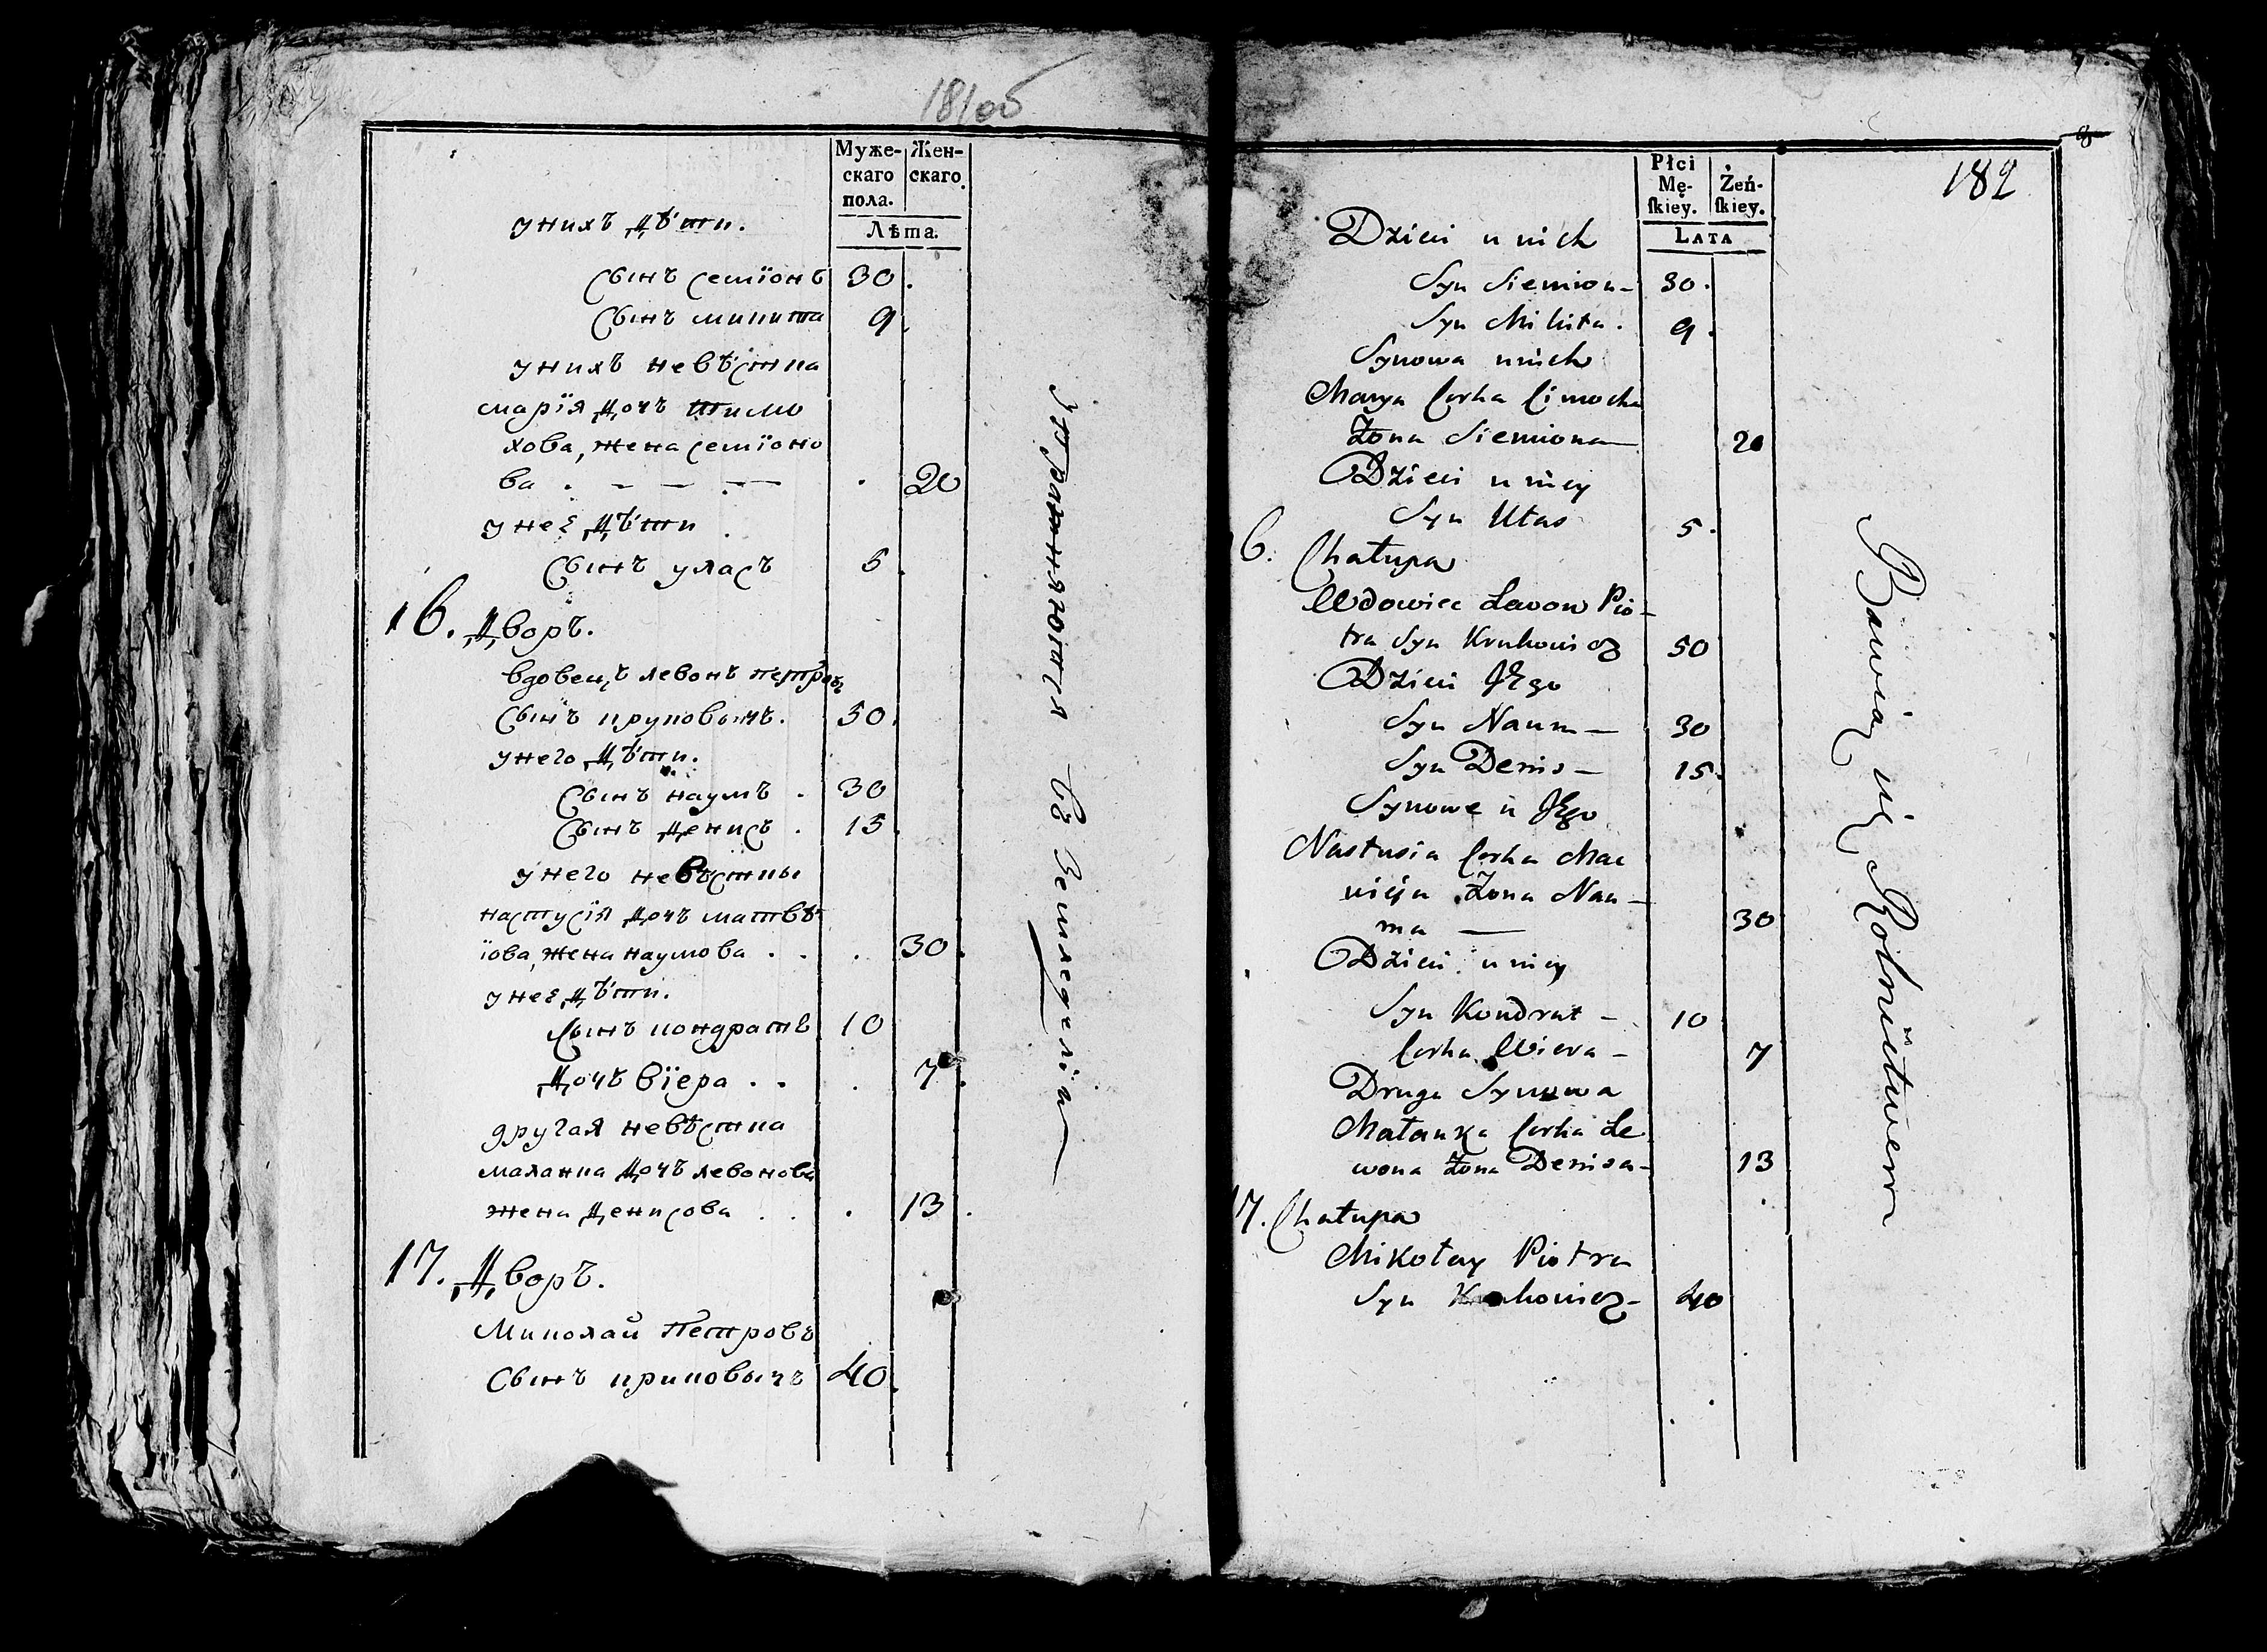 181об
Муже-
скаго
пола.
Жен-
скаго.
Лѣта.
унихъ дѣти.
Сынъ Семіонъ 30.
Сынъ микита 9.
унихъ невѣстка
марія дочъ тимо
хова, жена семіоно
ва . — — — . 20
унеё дѣти.
Сынъ уласъ 5.
16. Дворъ.
вдовецъ левонъ петровъ
Сынъ круковичъ. 50.
унего дѣти.
Сынъ наумъ . 30
Сынъ Денисъ . 15.
унего невѣстки
настусія дочъ матвѣ
іова, жена наумова . . . 30.
унеё дѣти.
Сынъ кондратъ 10
дочъ віера . . . 7.
другая невѣстка
маланка дочъ левонова
жена Денисова . . . 13.
17. Дворъ.
Миколай Петровъ
Сынъ круковичъ 40.
Упражняются въ Земледеліи
182
Płci
Mę-
skiey.
Żeń-
skiey.
LATA
Dzieci u nich
Syn Siemion — 30.
Syn Mikita. 9.
Synowa u nich
Marya Corka Cimocha
Żona Siemiona — 20
Dzieci u niey
Syn Ułas 5.
6. Chałupa
Wdowiec Lewon Pio-
tra Syn Krukowicz 50
Dzieci Jego
Syn Naum — 30
Syn Denis — 15.
Synowe u Jego
Nastusia Corka Mac
wieja Żona Nau-
ma — 30
Dzieci u niey
Syn Kondrat — 10
Corka Wiera — 7
Druga Synowa
Małanka Corka Le
wona Żona Denisa — 13
17. Chałupa
Mikołay Piotra
Syn Krukowicz — 40
Bawią się Rolnictwem